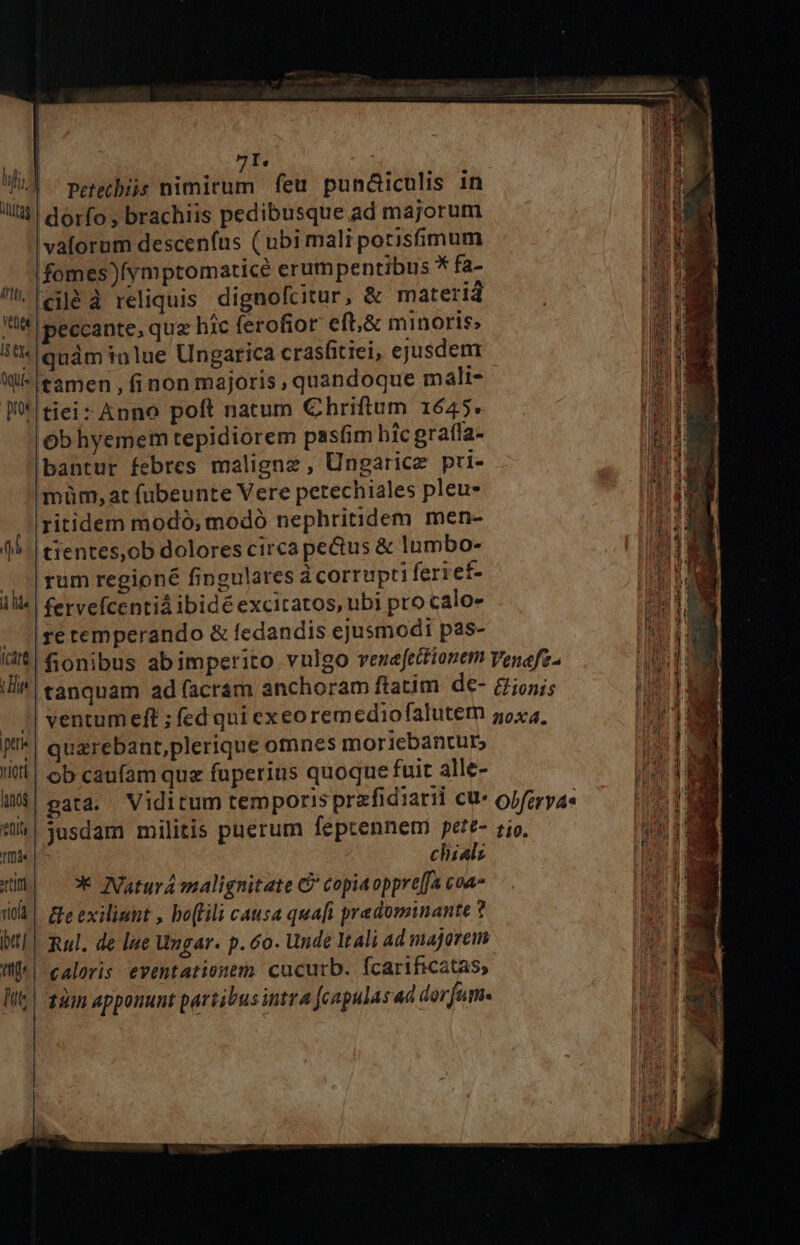 71.
Petechiis nimirum ſeu punćticulis in
dorſo, brachiis pedibusque ad majorum
vaſorum deſcenſus (ubi mali potisſimum
fomes)ſymptomaticè erumpentibus * fa-
cilè à reliquis dignoſcitur, & materiâ
peccante, quæ hîc ſeroſior eſt,& minoris,
quàm in lue Ungarica crasſitiei, ejusdem
tamen, ſi non majoris, quandoque mali-
tiei: Anno poſt natum Chriſtum 1645.
ob hyemem tepidiorem pasſim hîc graſſa-
bantur febres malignæ, Ungaricæ pri-
mùm, at ſubeunte Vere petechiales pleu-
ritidem modò, modò nephritidem men-
tientes,ob dolores circa pectus & lumbo-
rum regioné ſingulares à corrupti ſeri ef-
ferveſcentiâ ibidé excitatos, ubi pro calo-
re temperando & ſedandis ejusmodi pas-
ſionibus ab imperito vulgo venæſectionem Venæſe-
tanquam ad ſacram anchoram ſtatim de- ctionis
ventum eſt ; ſed qui ex eo remedio ſalutem noxa.
quærebant,plerique omnes moriebantur,
ob cauſam quæ ſuperius quoque fuit alle-
gata. Viditum temporis præſidiarii cu- Obſerva-
jusdam militis puerum ſeptennem pete- tio.
chiali
* Naturâ malignitate & copia oppreſſa coa-
cte exiliunt, hoſtili causa quaſi prædominante ?
Rul. de lue Ungar. p. 60. Unde Itali ad majorem
caloris eventationem cucurb. ſcarificatas,
tùm apponunt partibus intra ſcapulas ad dorſum.